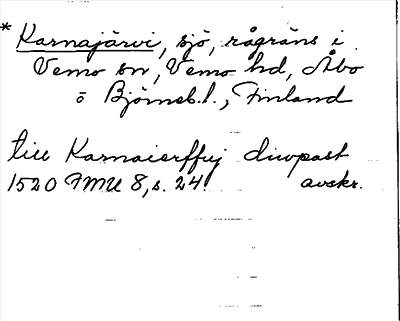 * Karnajärvi, sjö, rågräns i
Vemo sn, Vemo hd, Åbo
o Björneb. l., Finland
till Karnaierffuj diwpast
1520 FMU 8, s. 24. avskr.